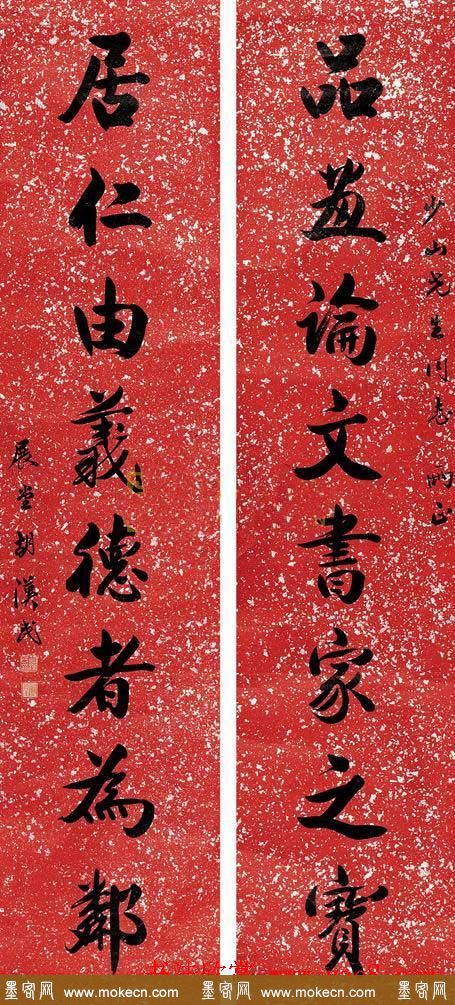 少山先生同志 两正
品画論文書家之寶
居仁由義德者為鄰
展堂胡漢民
墨客网 www.mokecn.com 墨客网 www.mokecn.com